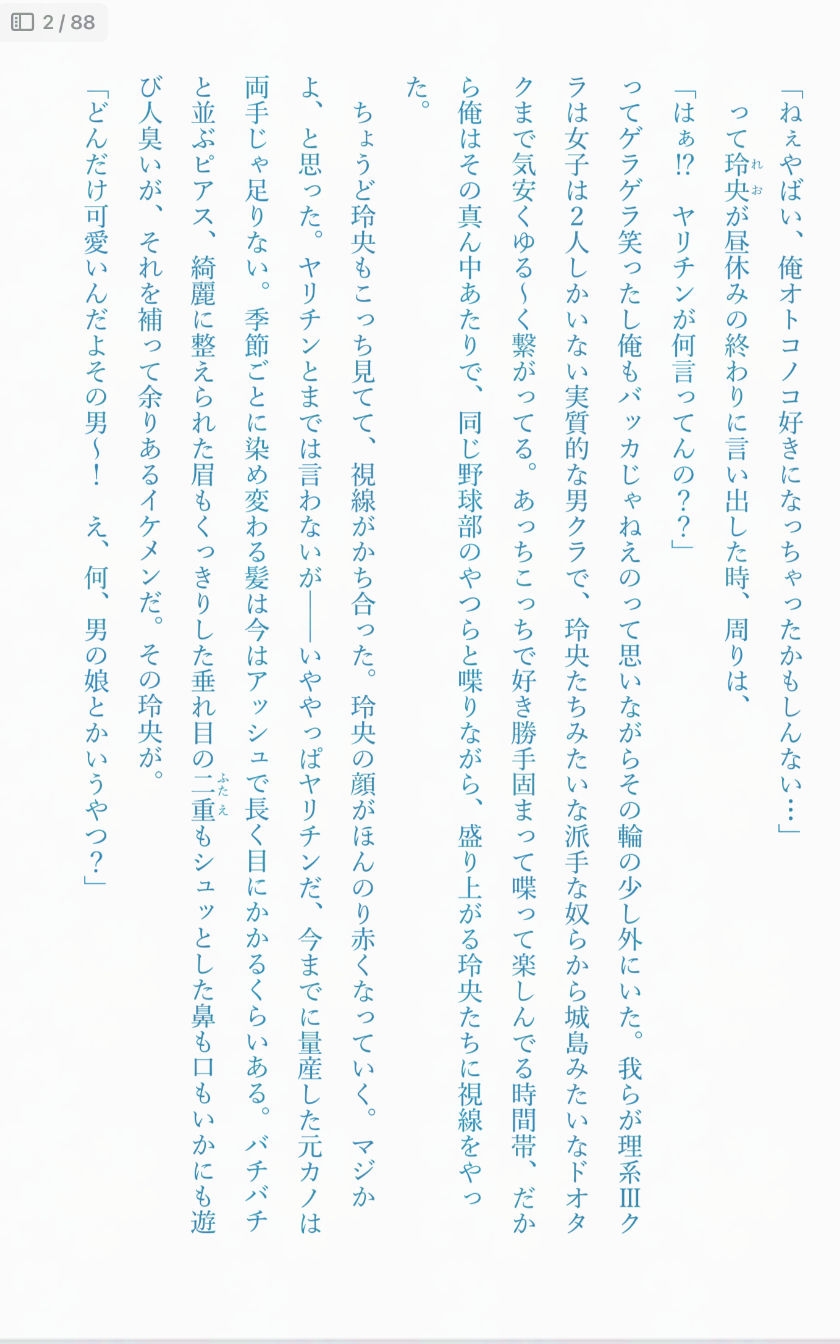 2 / 88
「ねぇやばい、俺オトコノコ好きになっちゃったかもしんない…」
って玲央が昼休みの終わりに言い出した時、周りは、
れお
「はぁ⁉　ヤリチンが何言ってんの？？」
ってゲラゲラ笑ったし俺もバッカじゃねえのって思いながらその輪の少し外にいた。我らが理系Ⅲク
ラは女子は２人しかいない実質的な男クラで、玲央たちみたいな派手な奴らから城島みたいなドオタ
クまで気安くゆる〜く繋がってる。あっちこっちで好き勝手固まって喋って楽しんでる時間帯、だか
ら俺はその真ん中あたりで、同じ野球部のやつらと喋りながら、盛り上がる玲央たちに視線をやっ
た。
ちょうど玲央もこっち見てて、視線がかち合った。玲央の顔がほんのり赤くなっていく。マジか
よ、と思った。ヤリチンとまでは言わないが――いややっぱヤリチンだ、今までに量産した元カノは
両手じゃ足りない。季節ごとに染め変わる髪は今はアッシュで長く目にかかるくらいある。バチバチ
と並ぶピアス、綺麗に整えられた眉もくっきりした垂れ目の二重もシュッとした鼻も口もいかにも遊
ふたえ
び人臭いが、それを補って余りあるイケメンだ。その玲央が。
「どんだけ可愛いんだよその男〜！　え、何、男の娘とかいうやつ？」